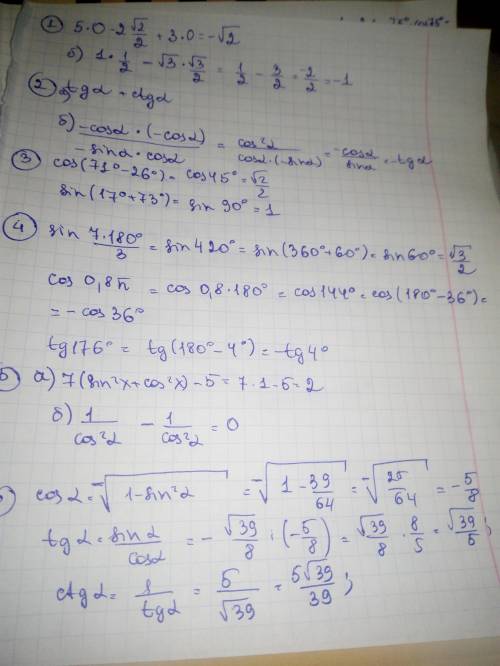 1 5·0-2 √2/2 + 3·0 = -√2
б) 1·1/2 - √3·√3/2 = 1/2 - 3/2 = -2/2 = -1
2 tgα + ctgα
б) -cosα·(-cosα)/-sinα·cosα = cos²α/cosα·(-sinα) = -cosα/sinα = -tgα
3 cos(71°-26°) = cos45° = √2/2
sin(17°+73°) = sin 90° = 1
4 sin 7·180°/3 = sin420° = sin(360°+60°) = sin60° = √3/2
cos 0,8π = cos 0,8·180° = cos144° = cos(180°-36°) =
= -cos36°
tg176° = tg(180°-4°) = -tg4°
5 а) 7(sin²x+cos²x)-5 = 7·1-5 = 2
б) 1/cos²α - 1/cos²α = 0
cosα = -√1-sin²α = -√1-39/64 = -√25/64 = -5/8
tgα = sinα/cosα = -√39/8 : (-5/8) = √39/8 · 8/5 = √39/5;
ctgα = 1/tgα = 5/√39 = 5√39/39;